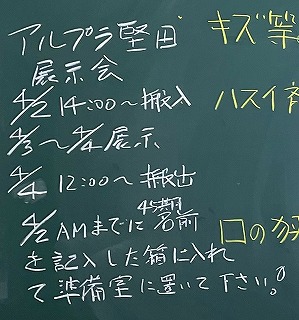 アルプラ堅田
展示会
4/2 14:00〜搬入
4/3〜4/4展示
4/4 12:00〜搬出
4/2 AMまでに名前
を記入した箱に入れ
て準備室に置いて下さい。
キズ等
ハスイ
口の